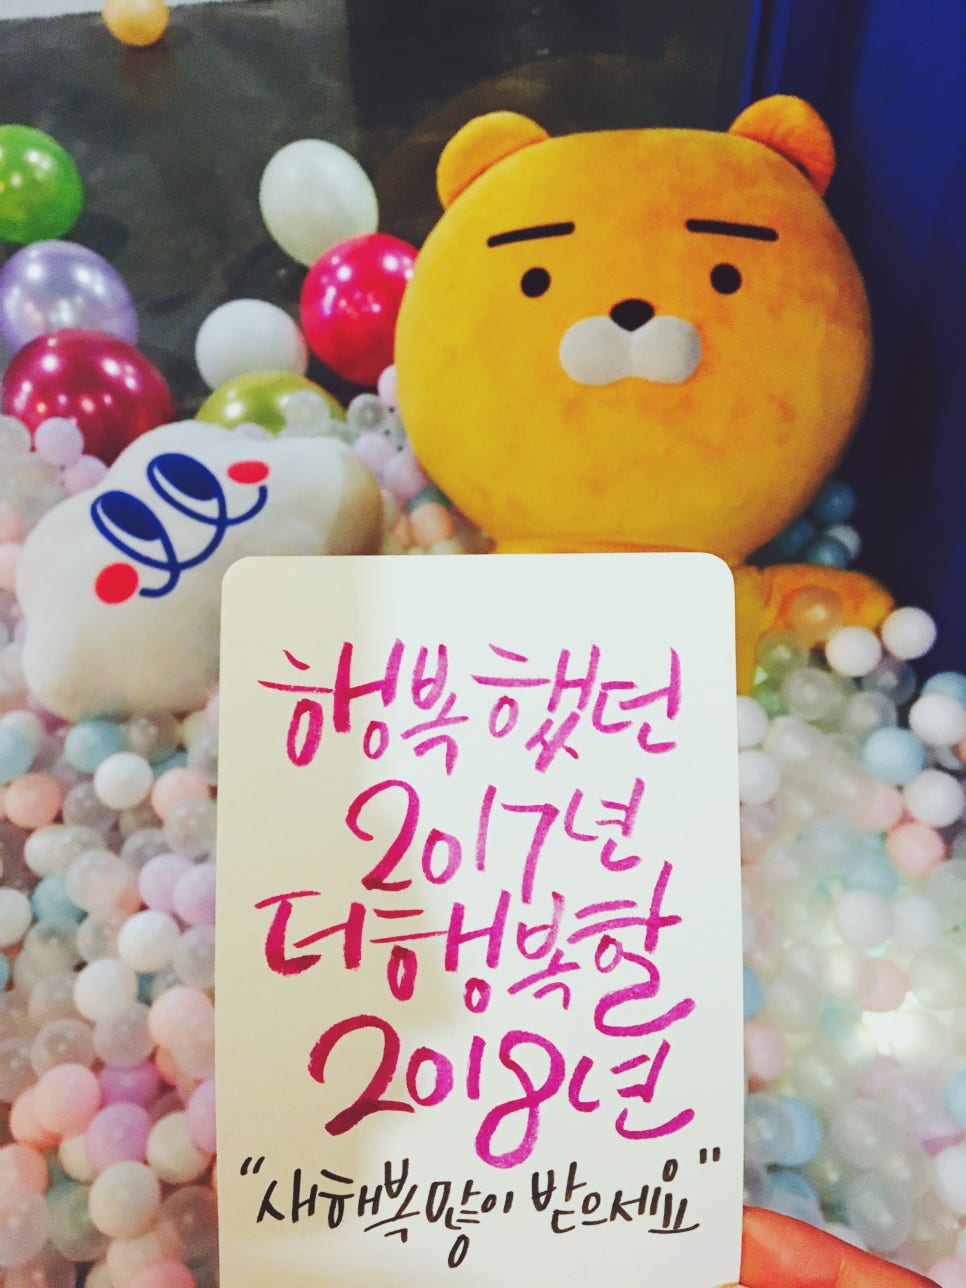 행복했던
2017년
더행복할
2018년
"새해복많이 받으세요"